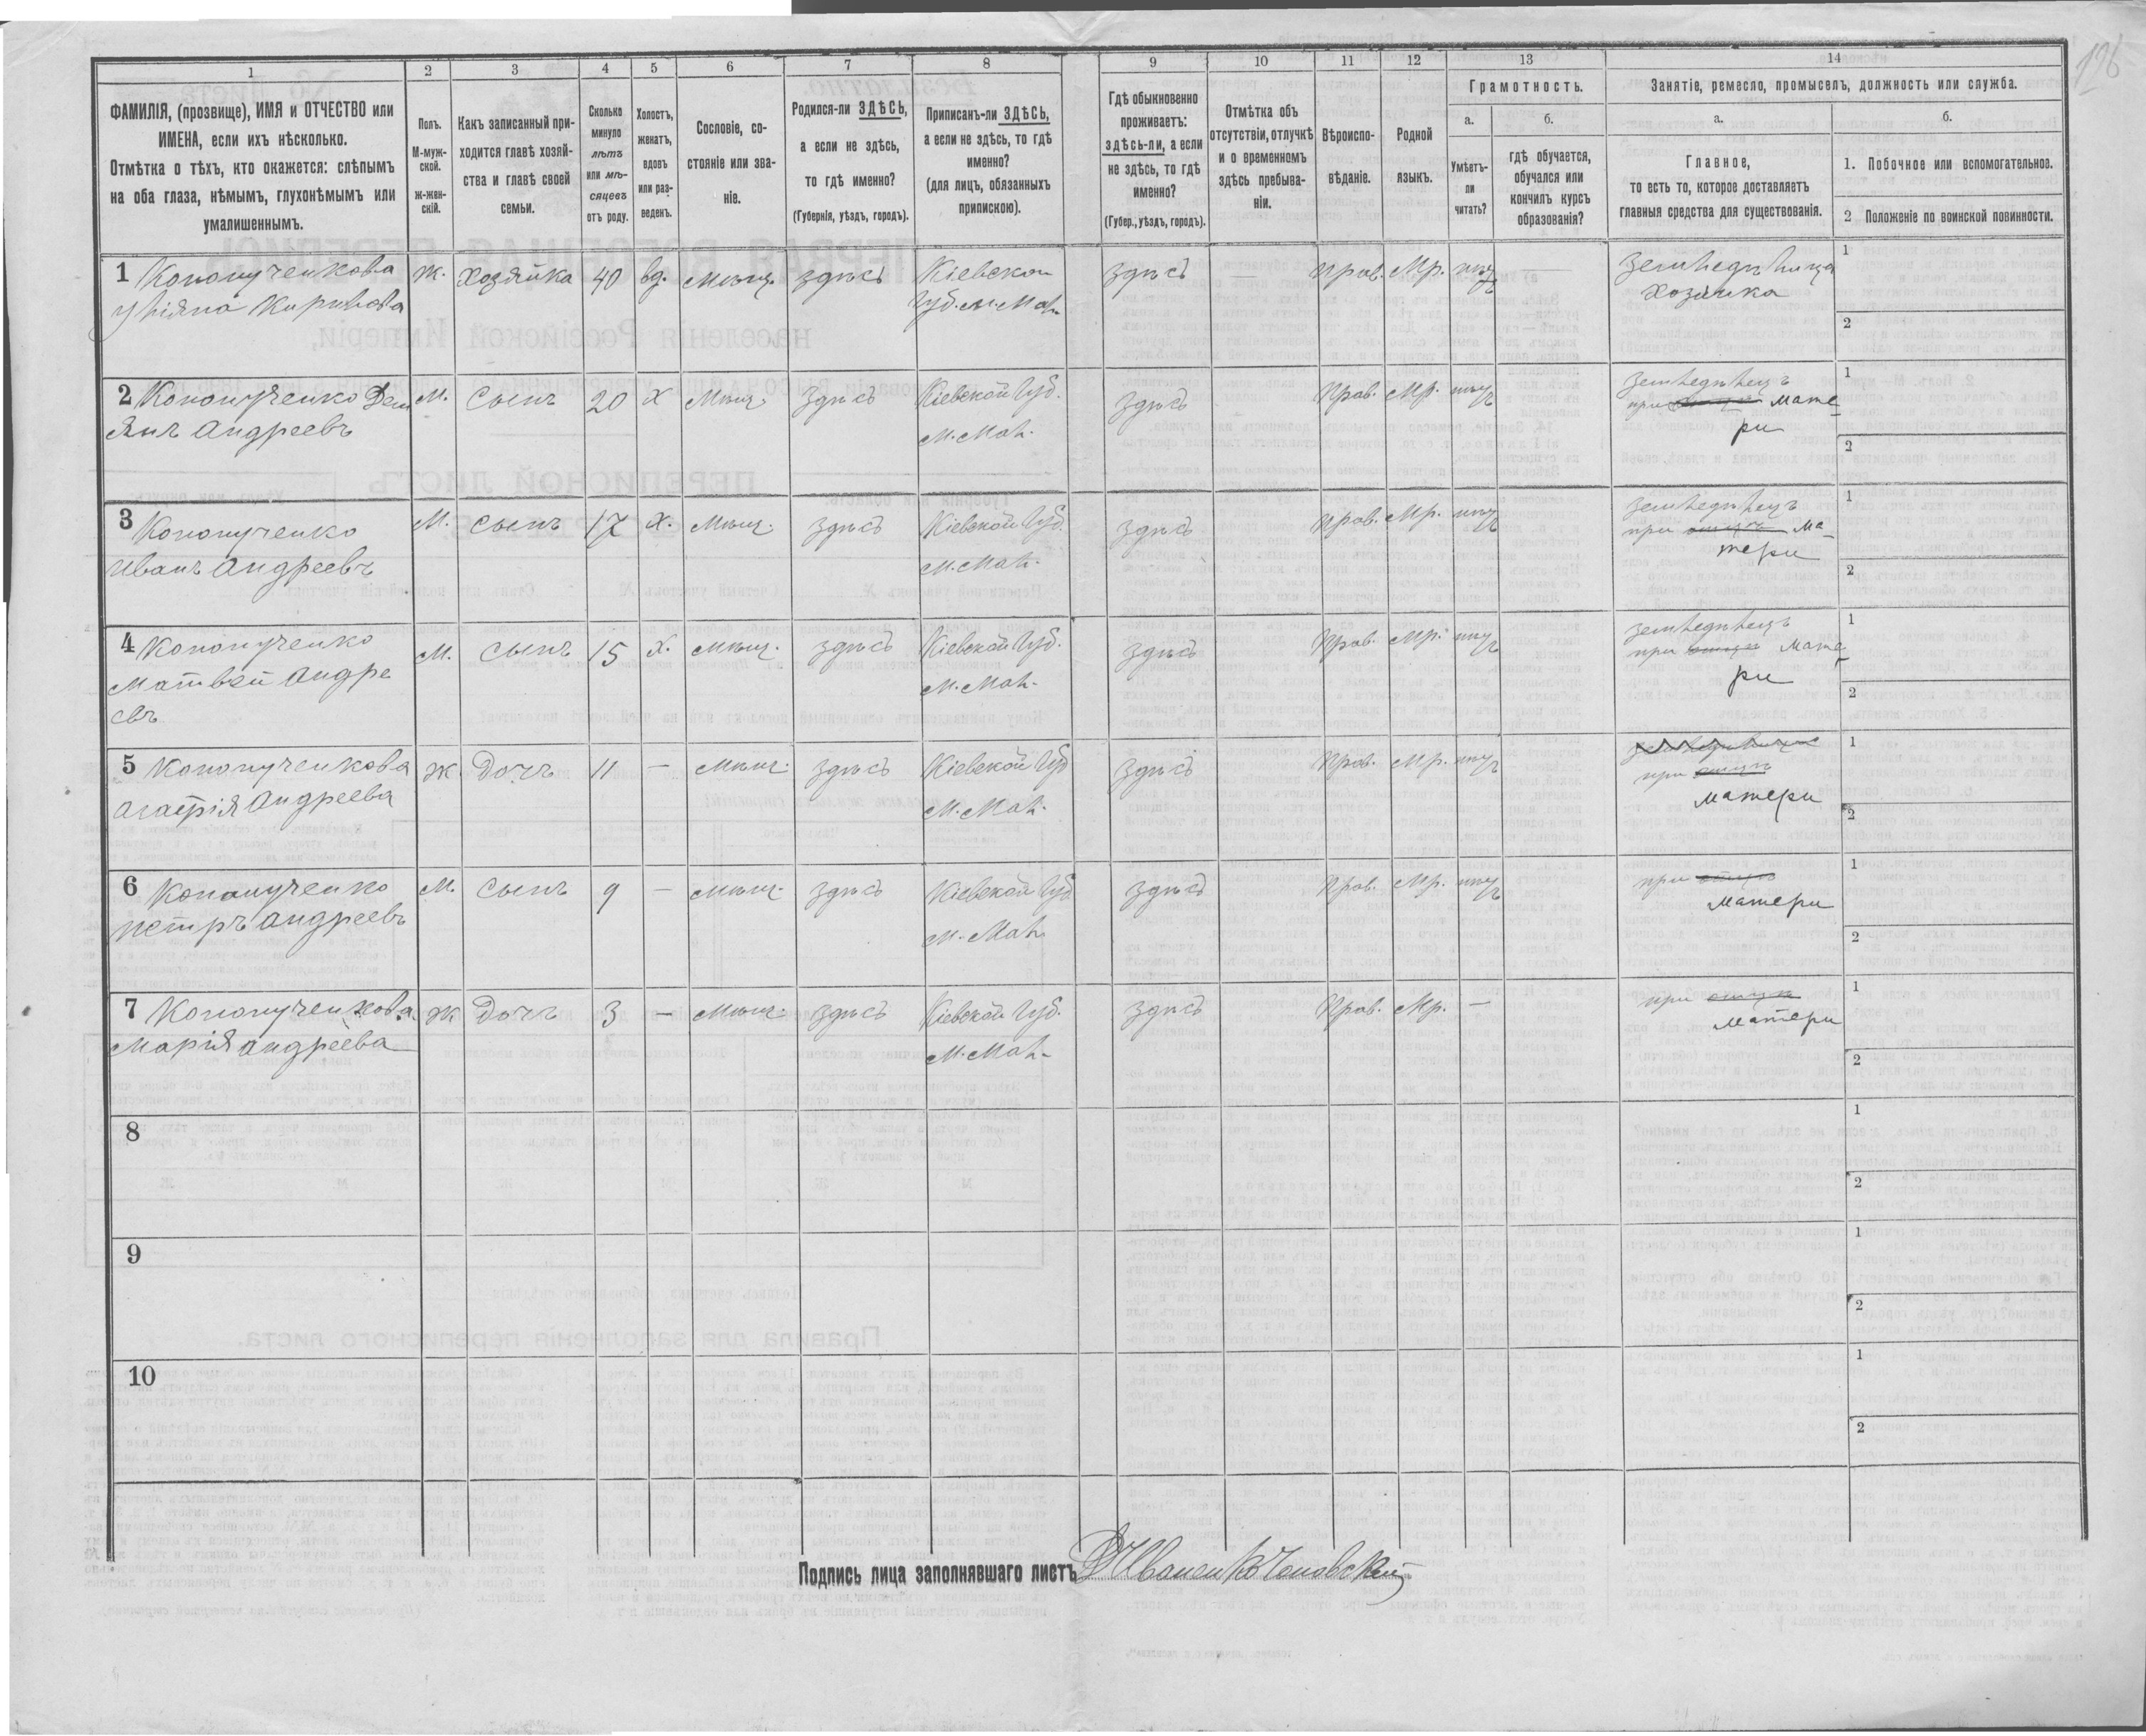 126
1
2
3
4
5
6
7
8
9
10
11
12
13
14
ФАМИЛІЯ, (прозвище), ИМЯ и ОТЧЕСТВО или
ИМЕНА, если ихъ нѣсколько.
Отмѣтка о тѣхъ, кто окажется: слѣпымъ
на оба глаза, нѣмымъ, глухонѣмымъ или
умалишеннымъ.
Полъ.
М-муж-
ской.
ж-жен-
скій.
Какъ записанный при-
ходится главѣ хозяй-
ства и главѣ своей
семьи.
Сколько
минуло
лѣтъ
или мѣ-
сяцевъ
отъ роду.
Холостъ,
женатъ,
вдовъ
или раз-
веденъ.
Сословіе, со-
стояніе или зва-
ніе.
Родился-ли ЗДѢСЬ,
а если не здѣсь,
то гдѣ именно?
(Губернія, уѣздъ, городъ).
Приписанъ-ли ЗДѢСЬ,
а если не здѣсь, то гдѣ
именно?
(для лицъ, обязанныхъ
припискою).
Гдѣ обыкновенно
проживаетъ:
здѣсь-ли, а если
не здѣсь, то гдѣ
именно?
(Губер., уѣздъ, городъ).
Отмѣтка объ
отсутствіи, отлучкѣ
и о временномъ
здѣсь пребыва-
ніи.
Вѣроиспо-
вѣданіе.
Родной
языкъ.
Грамотность.
а.
Умѣетъ-
ли
читать?
б.
гдѣ обучается,
обучался или
кончилъ курсъ
образованія?
Занятіе, ремесло, промыселъ, должность или служба.
а.
Главное,
то есть то, которое доставляетъ
главныя средства для существованія.
б.
1. Побочное или вспомогательное.
2 Положеніе по воинской повинности.
1 Кононученкова Ж. Хозяйка 40 вд. Мѣщ. здѣсь Кіевской здѣсь — Прав. Мр. нѣтъ 1
Кирилова Губ. М. хозяйка 2
2 Кононученко Дем М. Сынъ 20 Х Мѣщ. здѣсь Кіевской Губ. здѣсь Прав. Мр. нѣтъ 1
янъ Андреевъ М. при мате
ри 2
3 Кононученко М. сынъ 17 Х. Мѣщ. здѣсь Кіевской Губ. здѣсь Прав. Мр. нѣтъ 1
Иванъ Андреевъ М. при отцѣ ма
тери 2
4 Кононученко М. сынъ 15 Х. мѣщ. здѣсь Кіевской Губ. здѣсь Прав. Мр. нѣтъ 1
Матвей Андре М. при отцѣ мате
евъ ри 2
5 Кононученкова Ж Дочъ 11 — мѣщ. здѣсь Кіевской Губ здѣсь Прав. Мр. нѣтъ 1
Андреева М. при отцѣ
матери 2
6 Кононученко М. сынъ 9 — мѣщ. здѣсь Кіевской Губ здѣсь Прав. Мр. нѣтъ при отцѣ 1
Петръ Андреевъ М. матери 2
7 Кононученкова Ж Дочъ 3 — Мѣщ. здѣсь Кіевской Губ. здѣсь Прав. Мр. — при отцѣ 1
Марія Андреева М. матери 2
8 1
2
9 1
2
10 1
2
Подпись лица заполнявшаго листъ